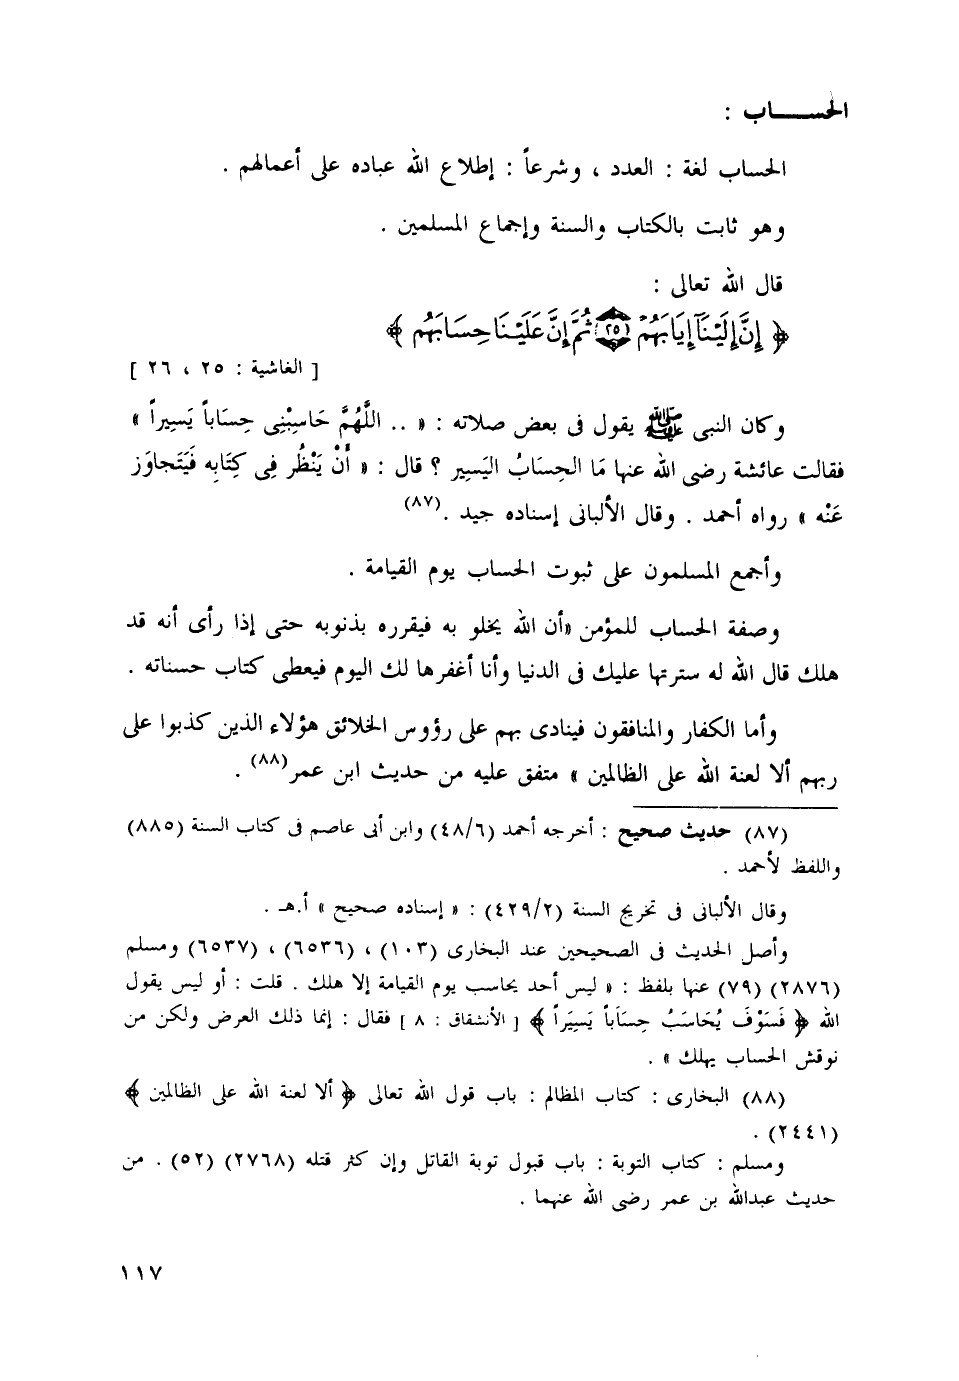 الحســـــاب :
الحساب لغة : العدد ، وشرعاً : إطلاع الله عباده على أعمالهم .
وهو ثابت بالكتاب والسنة وإجماع المسلمين .
قال الله تعالى :
﴿ إِنَّ إِلَيْنَآ إِيَابَهُمْ ۝٢٥ ثُمَّ إِنَّ عَلَيْنَا حِسَابَهُم ﴾
[ الغاشية : ٢٥ ، ٢٦ ]
وكان النبى ﷺ يقول فى بعض صلاته : « .. اللَّهُمَّ حَاسِبْنِى حِسَاباً يَسِيراً »
فقالت عائشة رضى الله عنها مَا الحِسَابُ اليَسِير ؟ قال : « أَنْ يَنْظُر فِى كِتَابِه فَيَتَجاوَز
عَنْه » رواه أحمد . وقال الألبانى إسناده جيد .(٨٧)
وأجمع المسلمون على ثبوت الحساب يوم القيامة .
وصفة الحساب للمؤمن «أن الله يخلو به فيقرره بذنوبه حتى إذا رأى أنه قد
هلك قال الله له سترتها عليك فى الدنيا وأنا أغفرها لك اليوم فيعطى كتاب حسناته .
وأما الكفار والمنافقون فينادى بهم على رؤوس الخلائق هؤلاء الذين كذبوا على
ربهم ألا لعنة الله على الظالمين » متفق عليه من حديث ابن عمر(٨٨) .
(٨٧) حديث صحيح : أخرجه أحمد (٤٨/٦) وابن أبى عاصم فى كتاب السنة (٨٨٥)
واللفظ لأحمد .
وقال الألبانى فى تخريج السنة (٤٢٩/٢) : « إسناده صحيح » أ.هـ .
وأصل الحديث فى الصحيحين عند البخارى (١٠٣) ، (٦٥٣٦) ، (٦٥٣٧) ومسلم
(٢٨٧٦) (٧٩) عنها بلفظ : « ليس أحد يحاسب يوم القيامة إلا هلك . قلت : أو ليس يقول
الله ﴿ فَسَوْفَ يُحَاسَبُ حِسَاَباً يَسِيَراً ﴾ [ الأنشقاق : ٨ ] فقال : إنما ذلك العرض ولكن من
نوقش الحساب يهلك » .
(٨٨) البخارى : كتاب المظالم : باب قول الله تعالى ﴿ ألا لعنة الله على الظالمين ﴾
(٢٤٤١) .
ومسلم : كتاب التوبة : باب قبول توبة القاتل وإن كثر قتله (٢٧٦٨) (٥٢) . من
حديث عبدالله بن عمر رضى الله عنهما .
١١٧